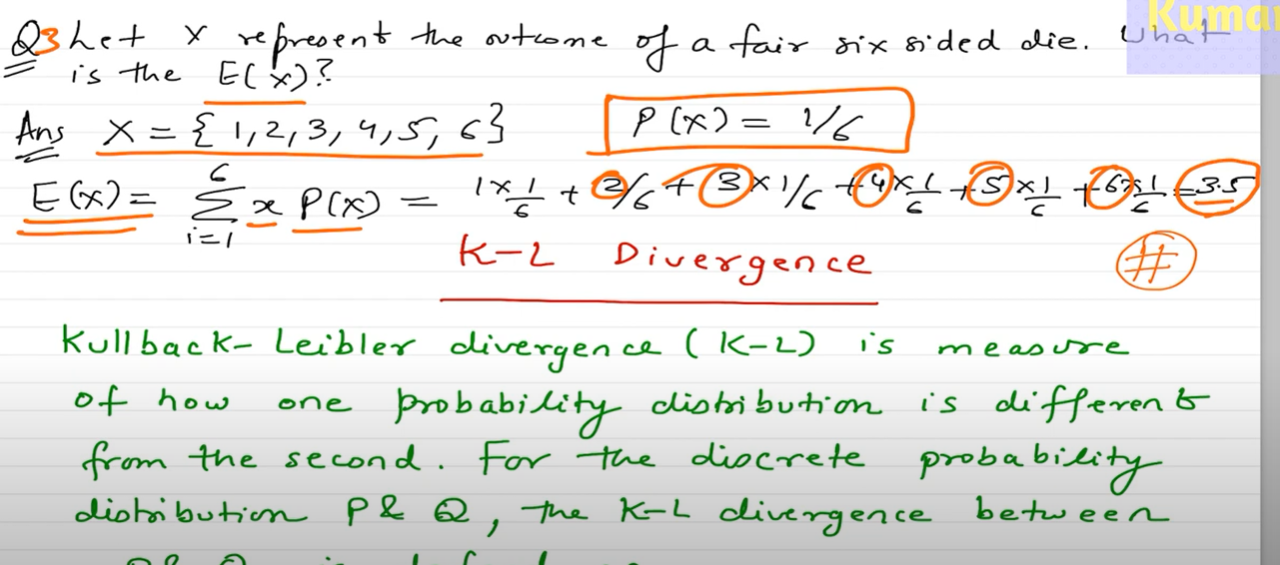 Kumar
Q3 Let X represent the outcome of a fair six sided die. What
is the E(x)?
Ans X = { 1, 2, 3, 4, 5, 6 } P(x) = 1/6
E(x) = 6 Σ i=1 x P(x) = 1 × 1/6 + 2/6 + 3 × 1/6 + 4 × 1/6 + 5 × 1/6 + 6 × 1/6 = 3.5
K-L Divergence #
Kullback-Leibler divergence (K-L) is measure
of how one probability distribution is different
from the second. For the discrete probability
distribution P & Q, the K-L divergence between